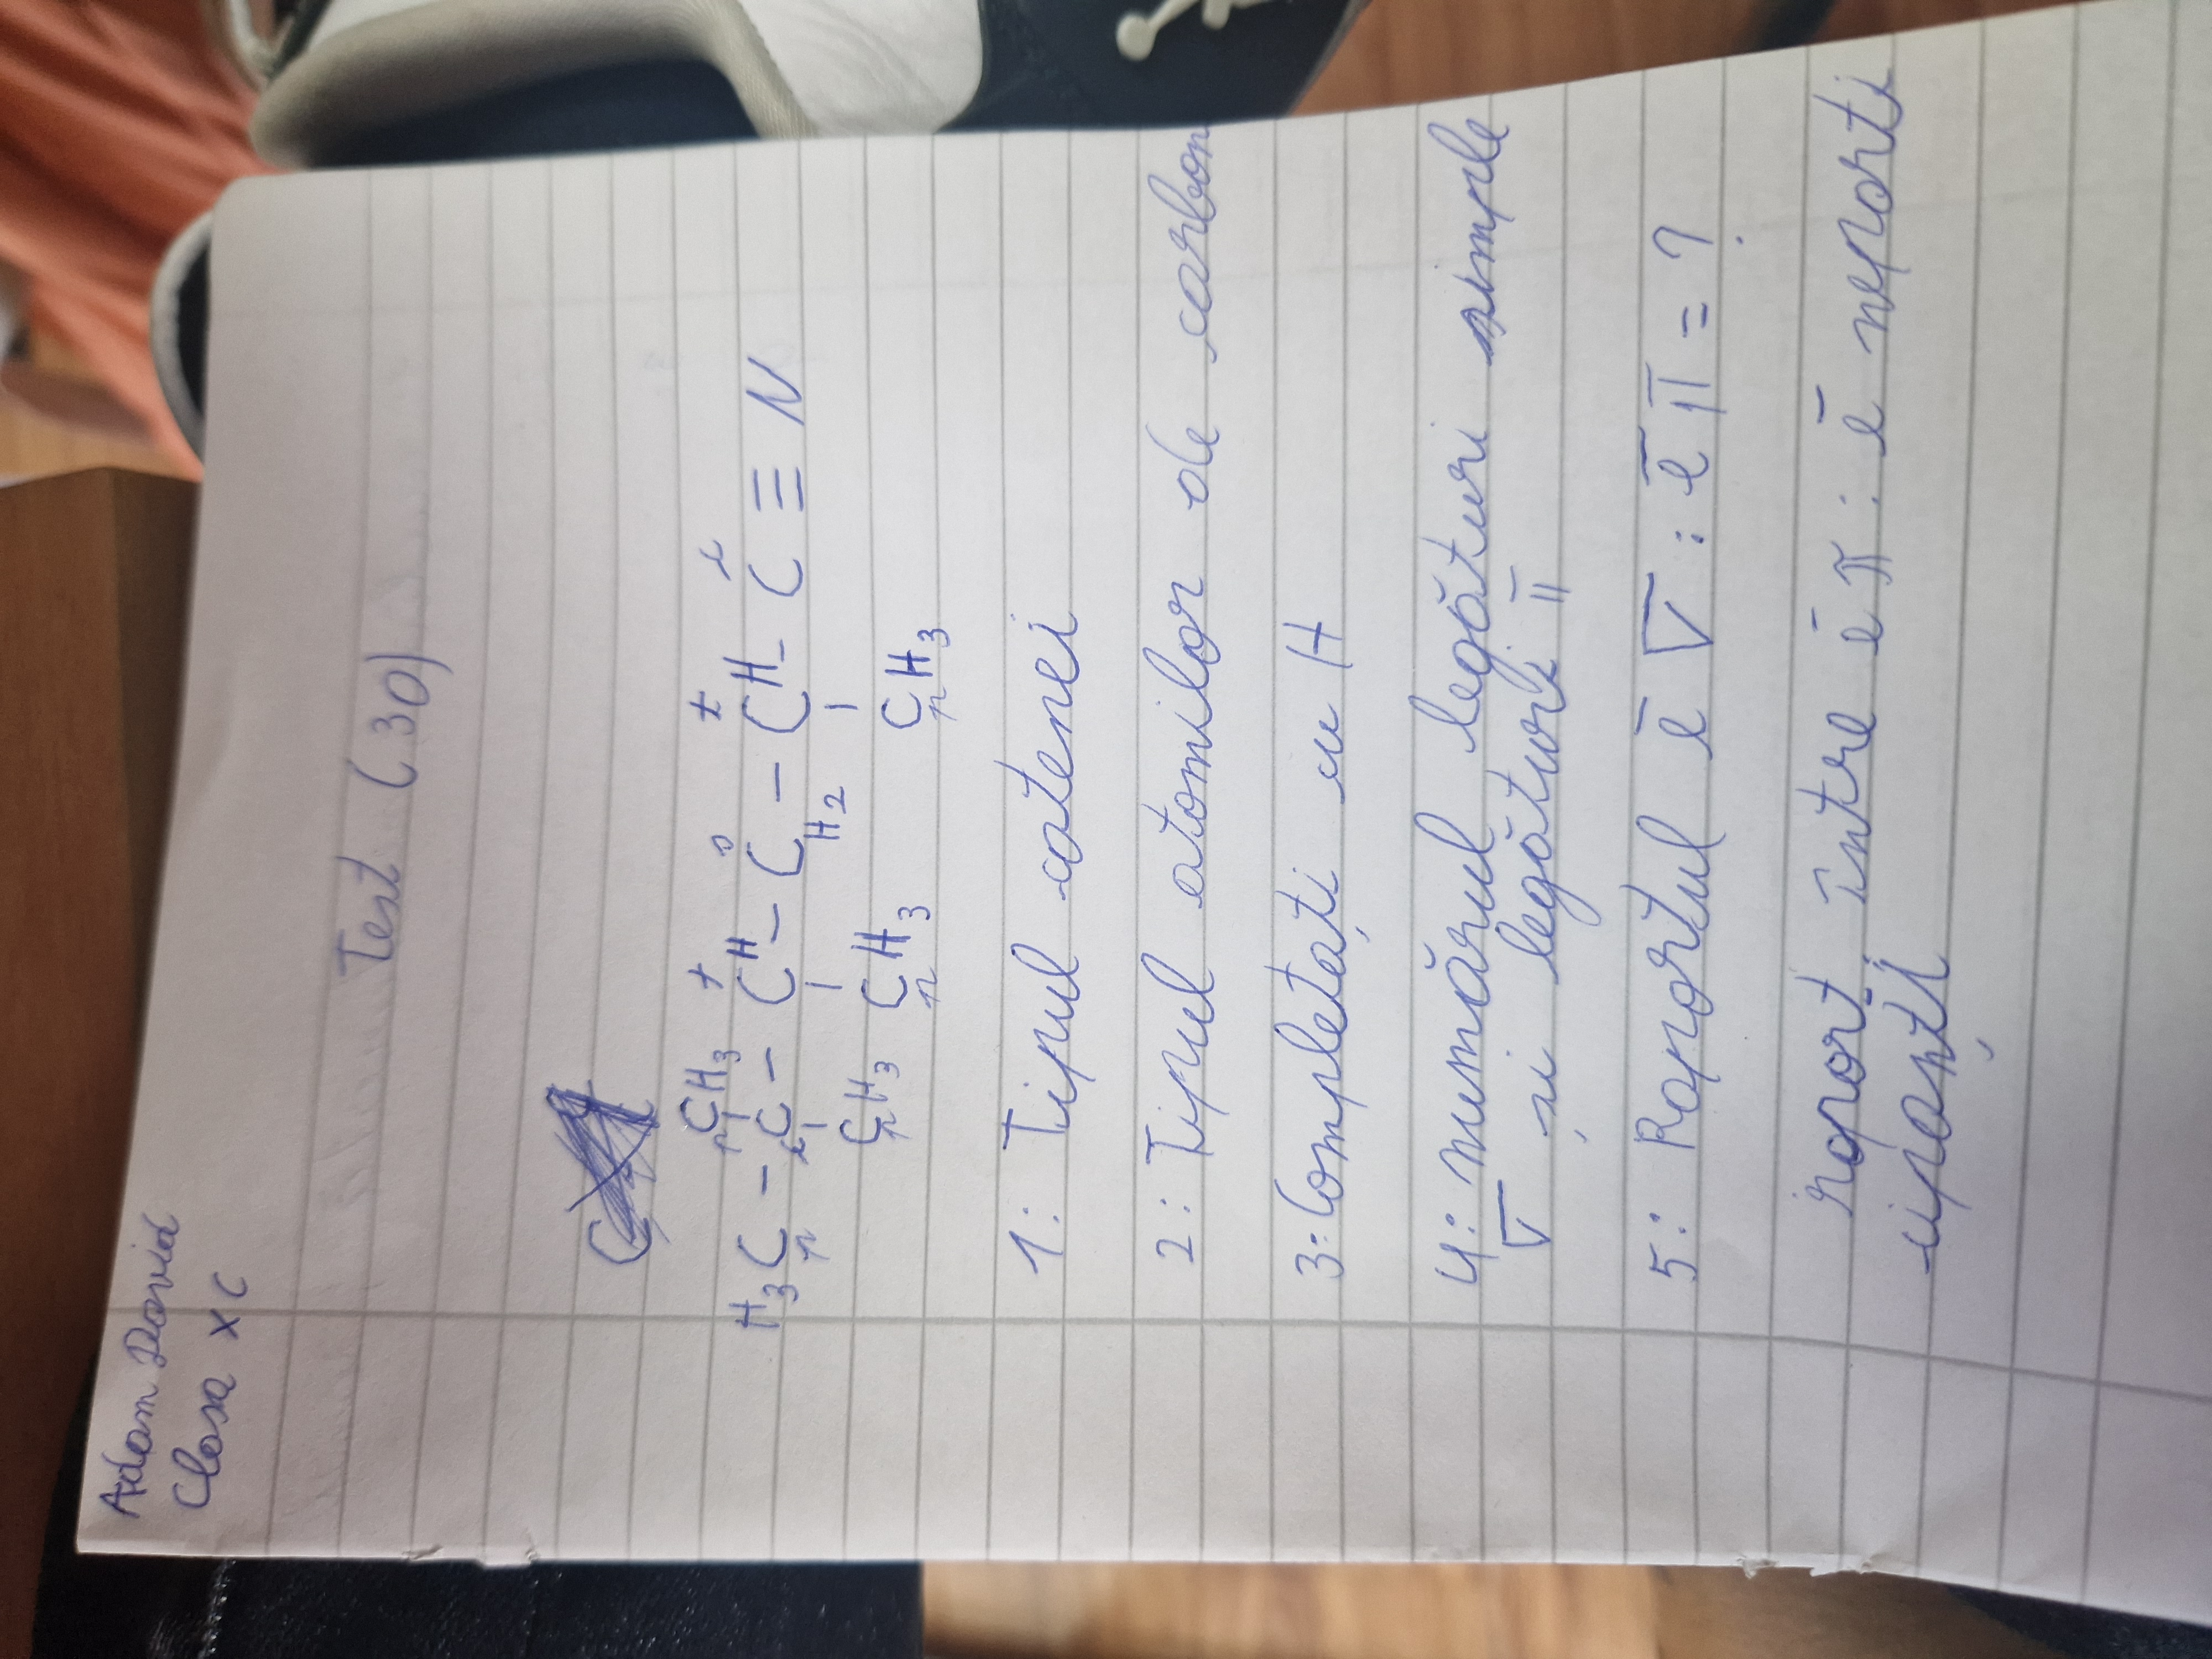 Adam David
Clasa X C
Test (30)
CH3 + s t c
n
H3C - C - CH - C - CH - C ≡ N
n c H2
CH3 CH3 CH3
n n n
1: Tipul catenei
2: Tipul atomilor de carbon
3: Completați cu H
4: numărul legături simple
σ și legături π
5: Raportul ē σ : ē π = ?
raport între ē π : ē neparti
cipanți